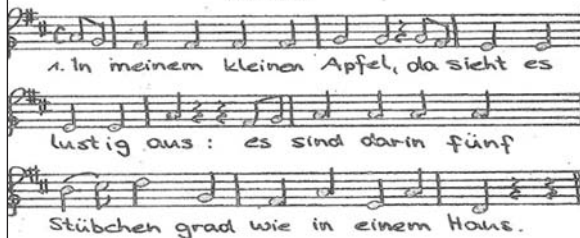 1. In meinem kleinen Apfel, da sieht es
lustig aus : es sind darin fünf
Stübchen grad wie in einem Haus.